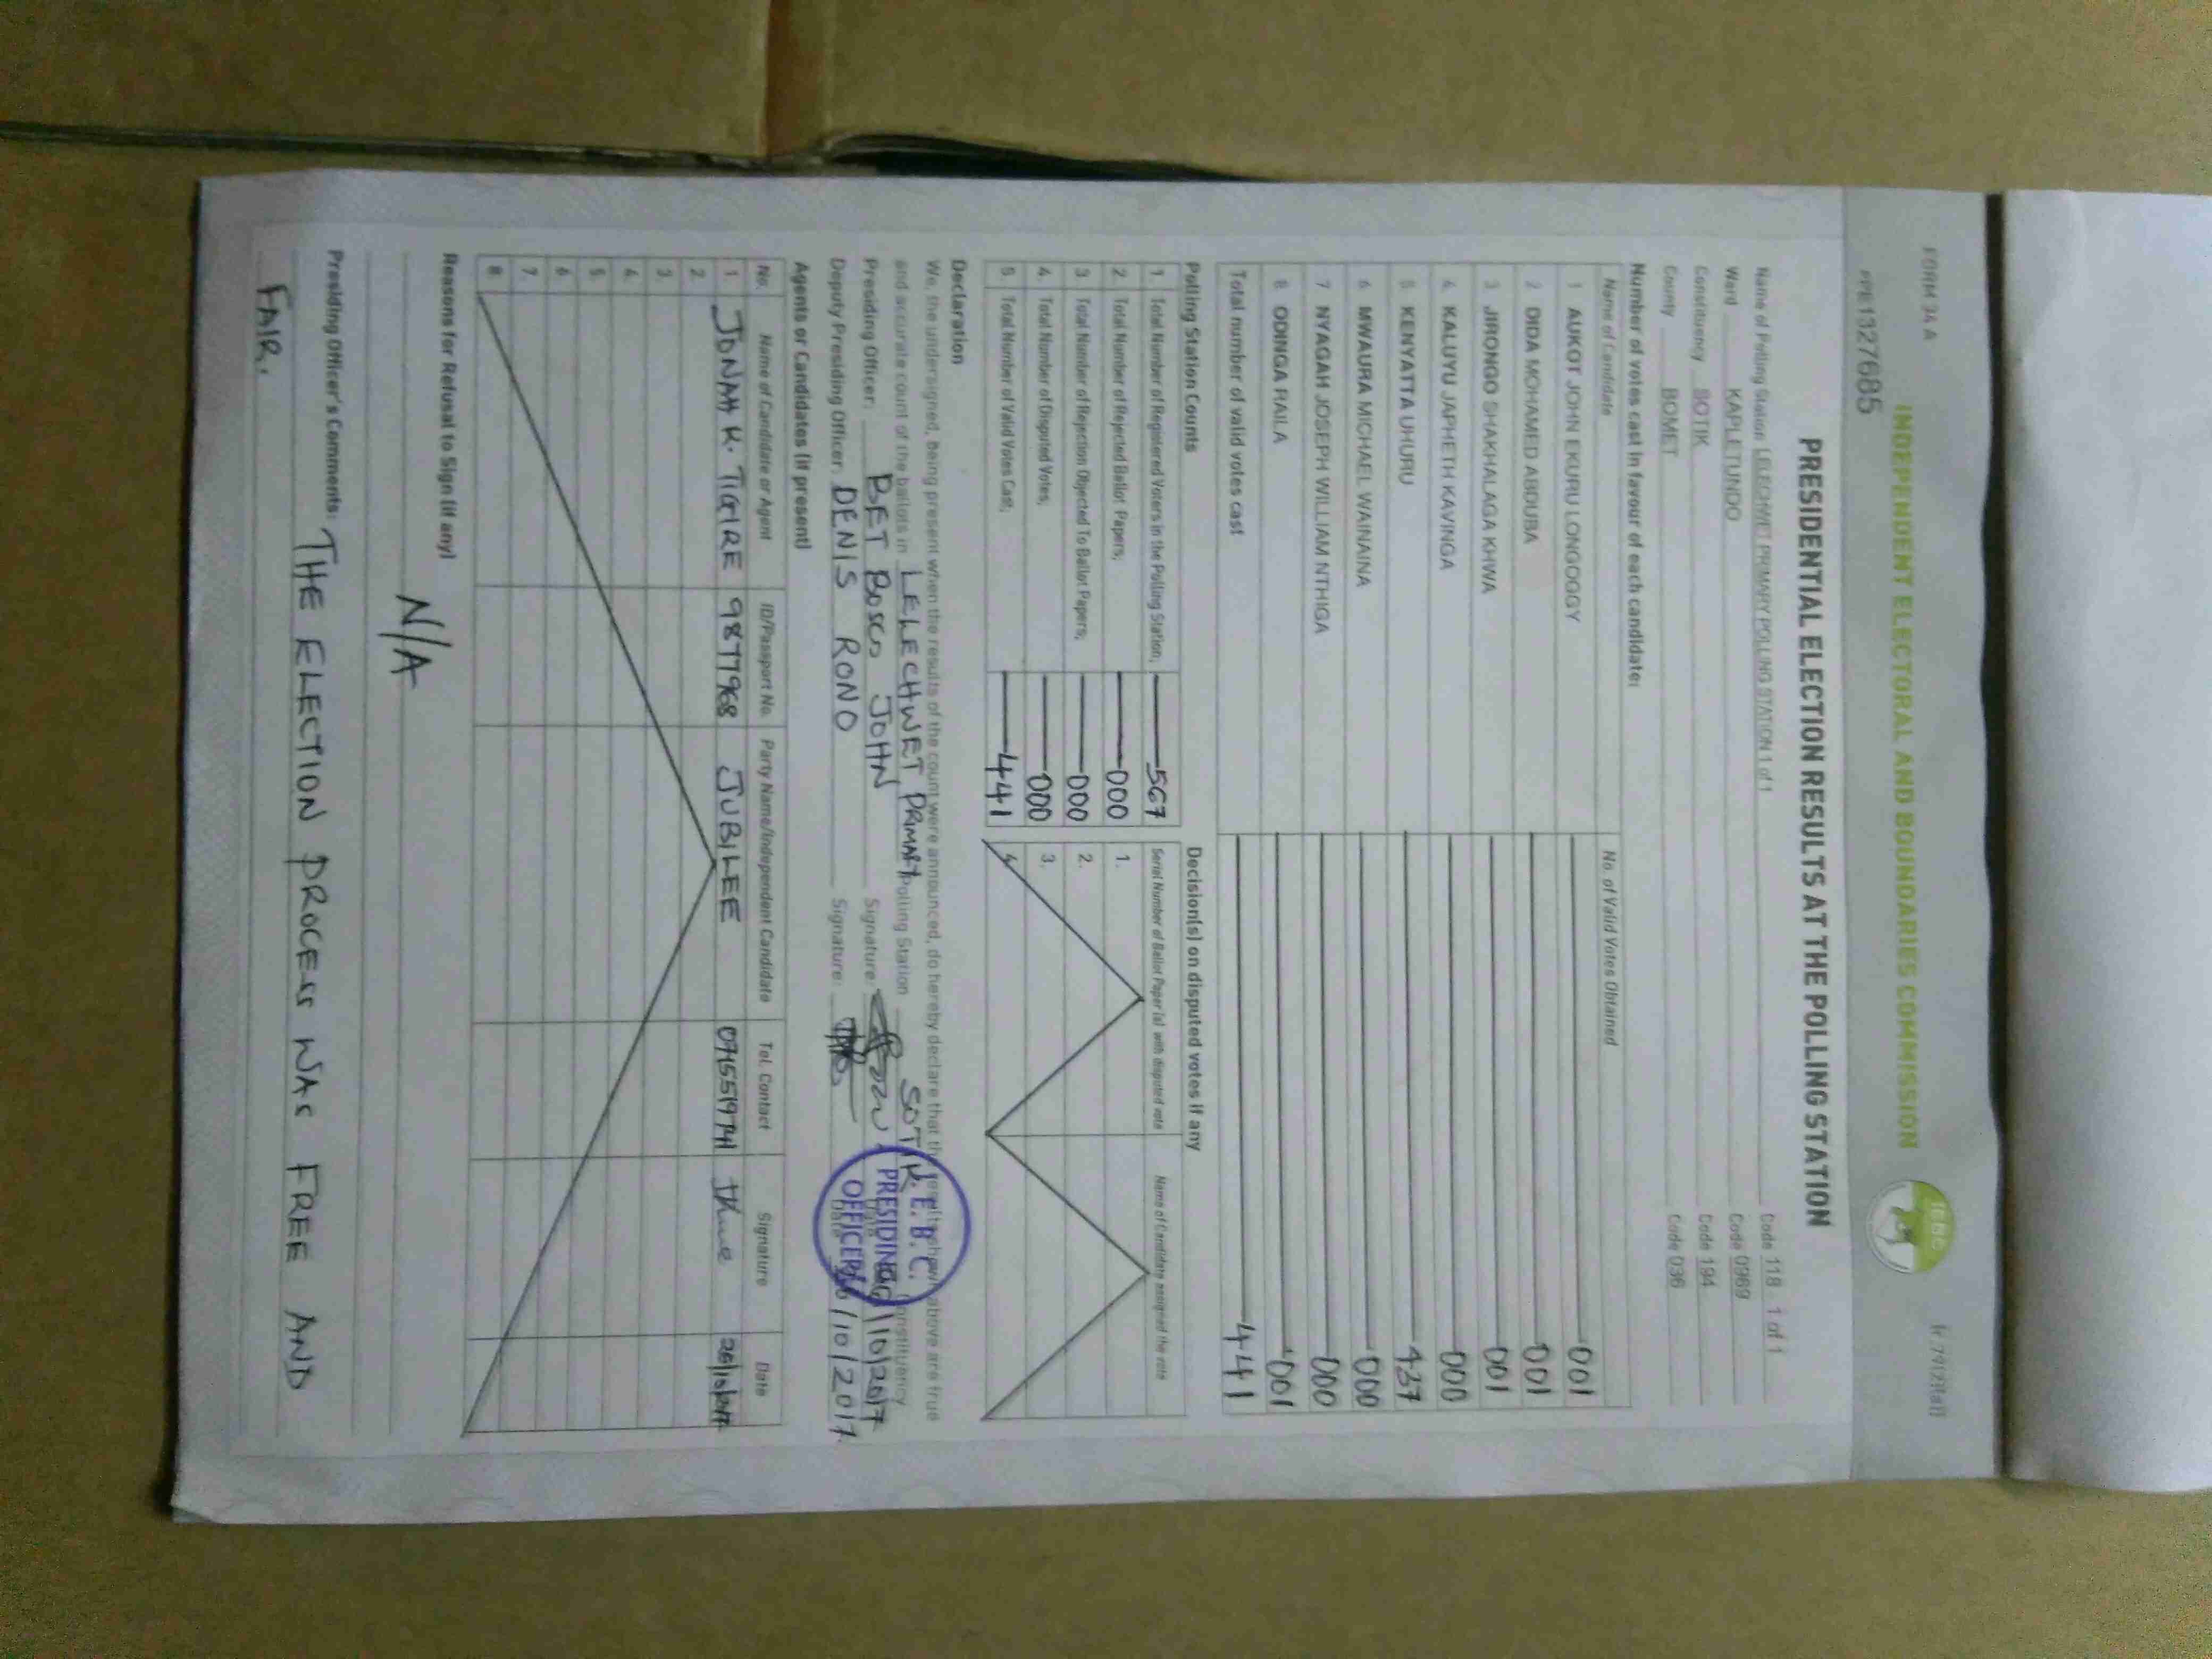 FORM 34 A
INDEPENDENT ELECTORAL AND BOUNDARIES COMMISSION
iebc
PPE1327685
PRESIDENTIAL ELECTION RESULTS AT THE POLLING STATION
Name of Polling Station LELECHWET PRIMARY POLLING STATION 1 of 1 Code 118 1 of 1
Ward KAPLETUNDO Code 0969
Constituency SOTIK Code 194
County BOMET Code 036
Number of votes cast in favour of each candidate:
Name of Candidate No. of Valid Votes Obtained
1 AUKOT JOHN EKURU LONGOGGY 001
2 DIDA MOHAMED ABDUBA 001
3 JIRONGO SHAKHALAGA KHWA 001
4 KALUYU JAPHETH KAVINGA 000
5 KENYATTA UHURU 437
6 MWAURA MICHAEL WAINAINA 000
7 NYAGAH JOSEPH WILLIAM NTHIGA 000
8 ODINGA RAILA 001
Total number of valid votes cast 441
Polling Station Counts
1. Total Number of Registered Voters in the Polling Station; 567
2. Total Number of Rejected Ballot Papers; 000
3. Total Number of Rejection Objected To Ballot Papers; 000
4. Total Number of Disputed Votes; 000
5. Total Number of Valid Votes Cast; 441
Decision(s) on disputed votes if any
Serial Number of Ballot Paper (s) with disputed vote Name of Candidate assigned the vote
1.
2.
3.
4.
Declaration
We, the undersigned, being present when the results of the count were announced, do hereby declare that the results shown above are true
and accurate count of the ballots in LELECHWET PRIMARY Polling Station SOTIK Constituency
Presiding Officer: BET BOSCO JOHN Signature: Date 26/10/2017
Deputy Presiding Officer: DENIS RONO Signature: Date 26/10/2017
I. E. B. C.
PRESIDING
OFFICER
Agents or Candidates (if present)
No. Name of Candidate or Agent ID/Passport No. Party Name/Independent Candidate Tel. Contact Signature Date
1 JONAH K. TIGIRE JUBILEE 26/10/2017
2.
3.
4.
5.
6.
7.
8.
Reasons for Refusal to Sign (if any)
N/A
Presiding Officer's Comments: THE ELECTION PROCESS WAS FREE AND
FAIR.